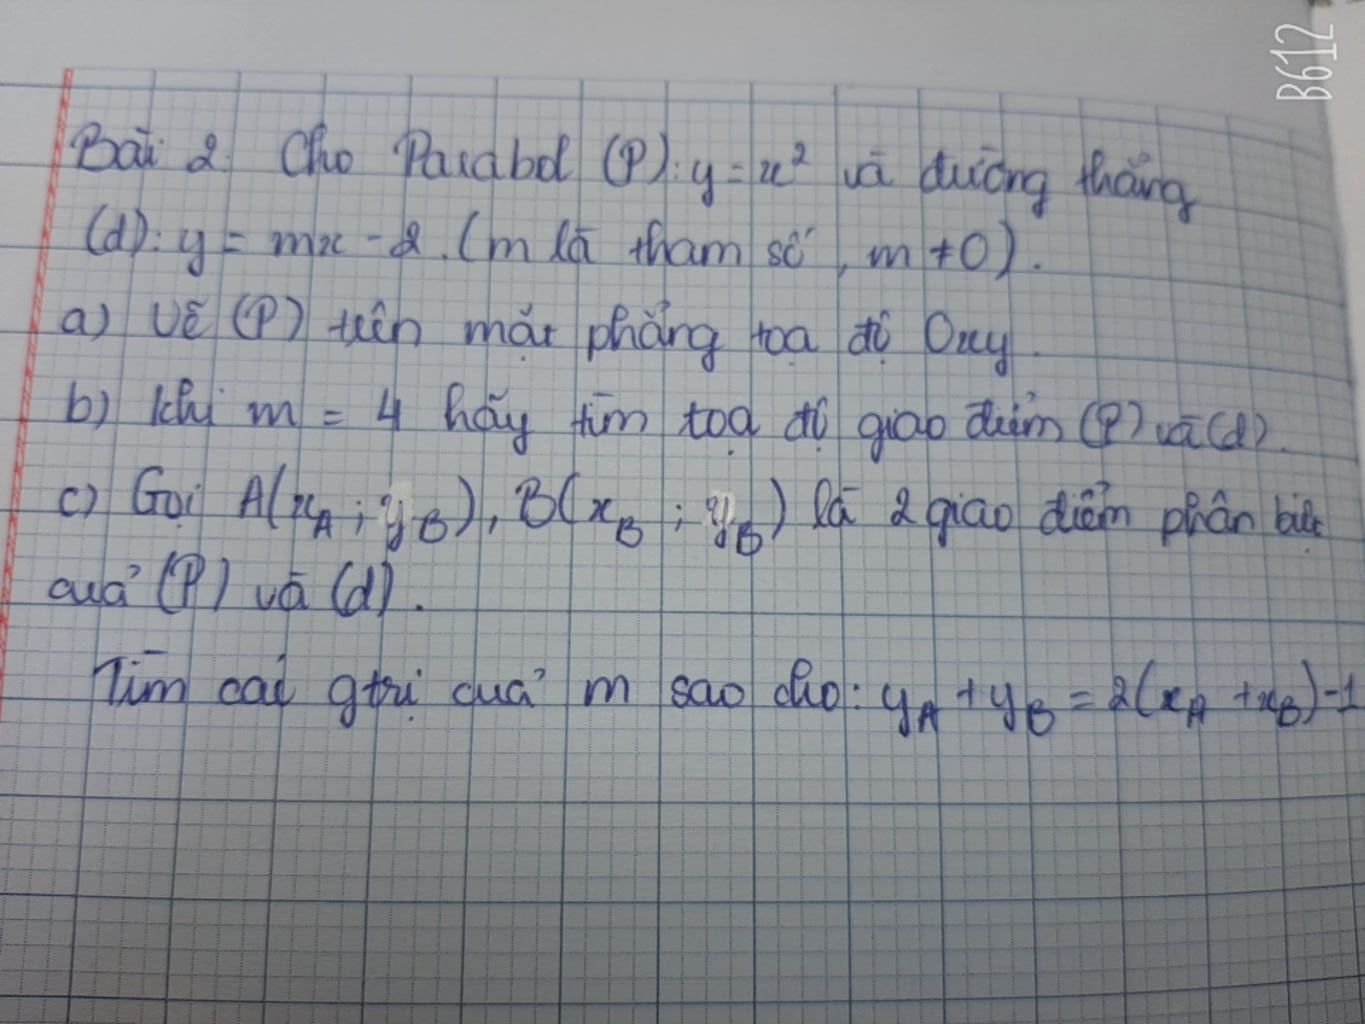 Bài 2. Cho Parabol (P): y = x² và đường thẳng
(d): y = mx - 2. (m là tham số, m ≠ 0).
a) Vẽ (P) trên mặt phẳng toạ độ Oxy.
b) Khi m = 4 hãy tìm toạ độ giao điểm (P) và (d).
c) Gọi A(x_A ; y_B), B(x_B ; y_B) là 2 giao điểm phân biệt
của (P) và (d).
Tìm các gtrị của m sao cho: y_A + y_B = 2(x_A + x_B) - 1
B612